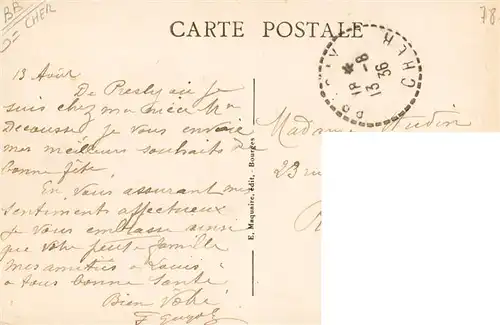 BB
CHER
78
CARTE POSTALE
PRESLY CHER
13 -8
36
13 Août
De Presly où je
suis chez ma nièce Mme
Decousse je vous envoie
mes meilleurs souhaits de
bonne fête.
En vous assurant mes
sentiments affectueux
je vous embrasse ainsi
que votre petite famille
mes amitiés à Louis
à tous bonne santé
Bien Vôtre
E. Maquaire, édit. - Bourges
Madame
23 ru